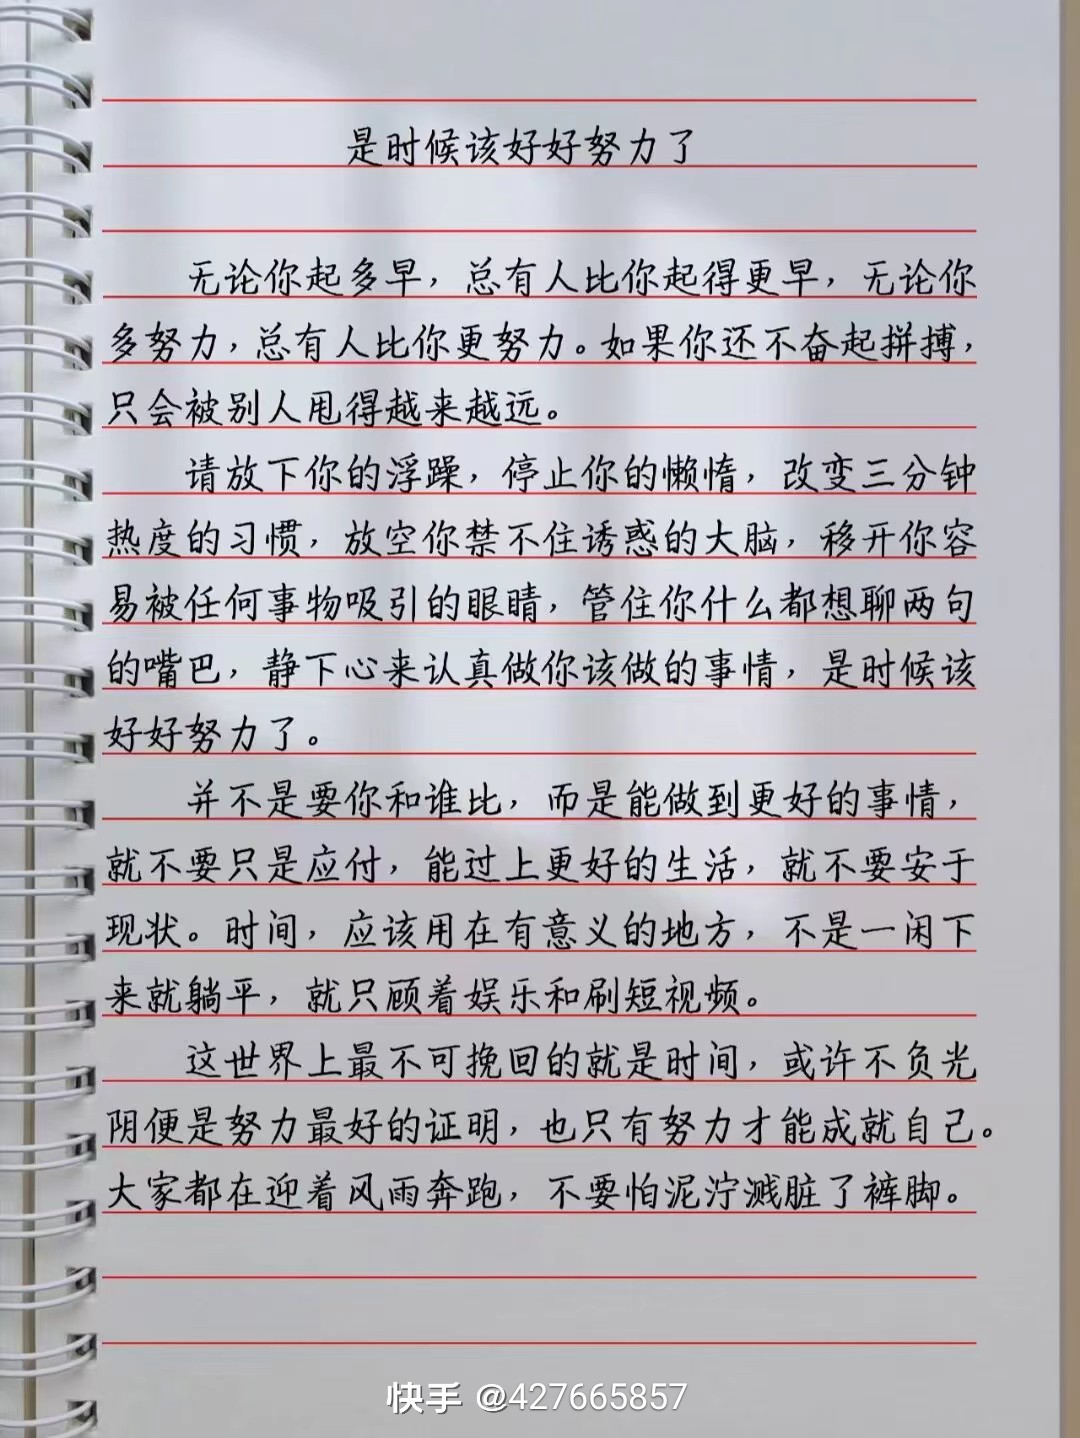 是时候该好好努力了
无论你起多早，总有人比你起得更早，无论你
多努力，总有人比你更努力。如果你还不奋起拼搏，
只会被别人甩得越来越远。
请放下你的浮躁，停止你的懒惰，改变三分钟
热度的习惯，放空你禁不住诱惑的大脑，移开你容
易被任何事物吸引的眼睛，管住你什么都想聊两句
的嘴巴，静下心来认真做你该做的事情，是时候该
好好努力了。
并不是要你和谁比，而是能做到更好的事情，
就不要只是应付，能过上更好的生活，就不要安于
现状。时间，应该用在有意义的地方，不是一闲下
来就躺平，就只顾着娱乐和刷短视频。
这世界上最不可挽回的就是时间，或许不负光
阴便是努力最好的证明，也只有努力才能成就自己。
大家都在迎着风雨奔跑，不要怕泥泞溅脏了裤脚。
快手 @427665857